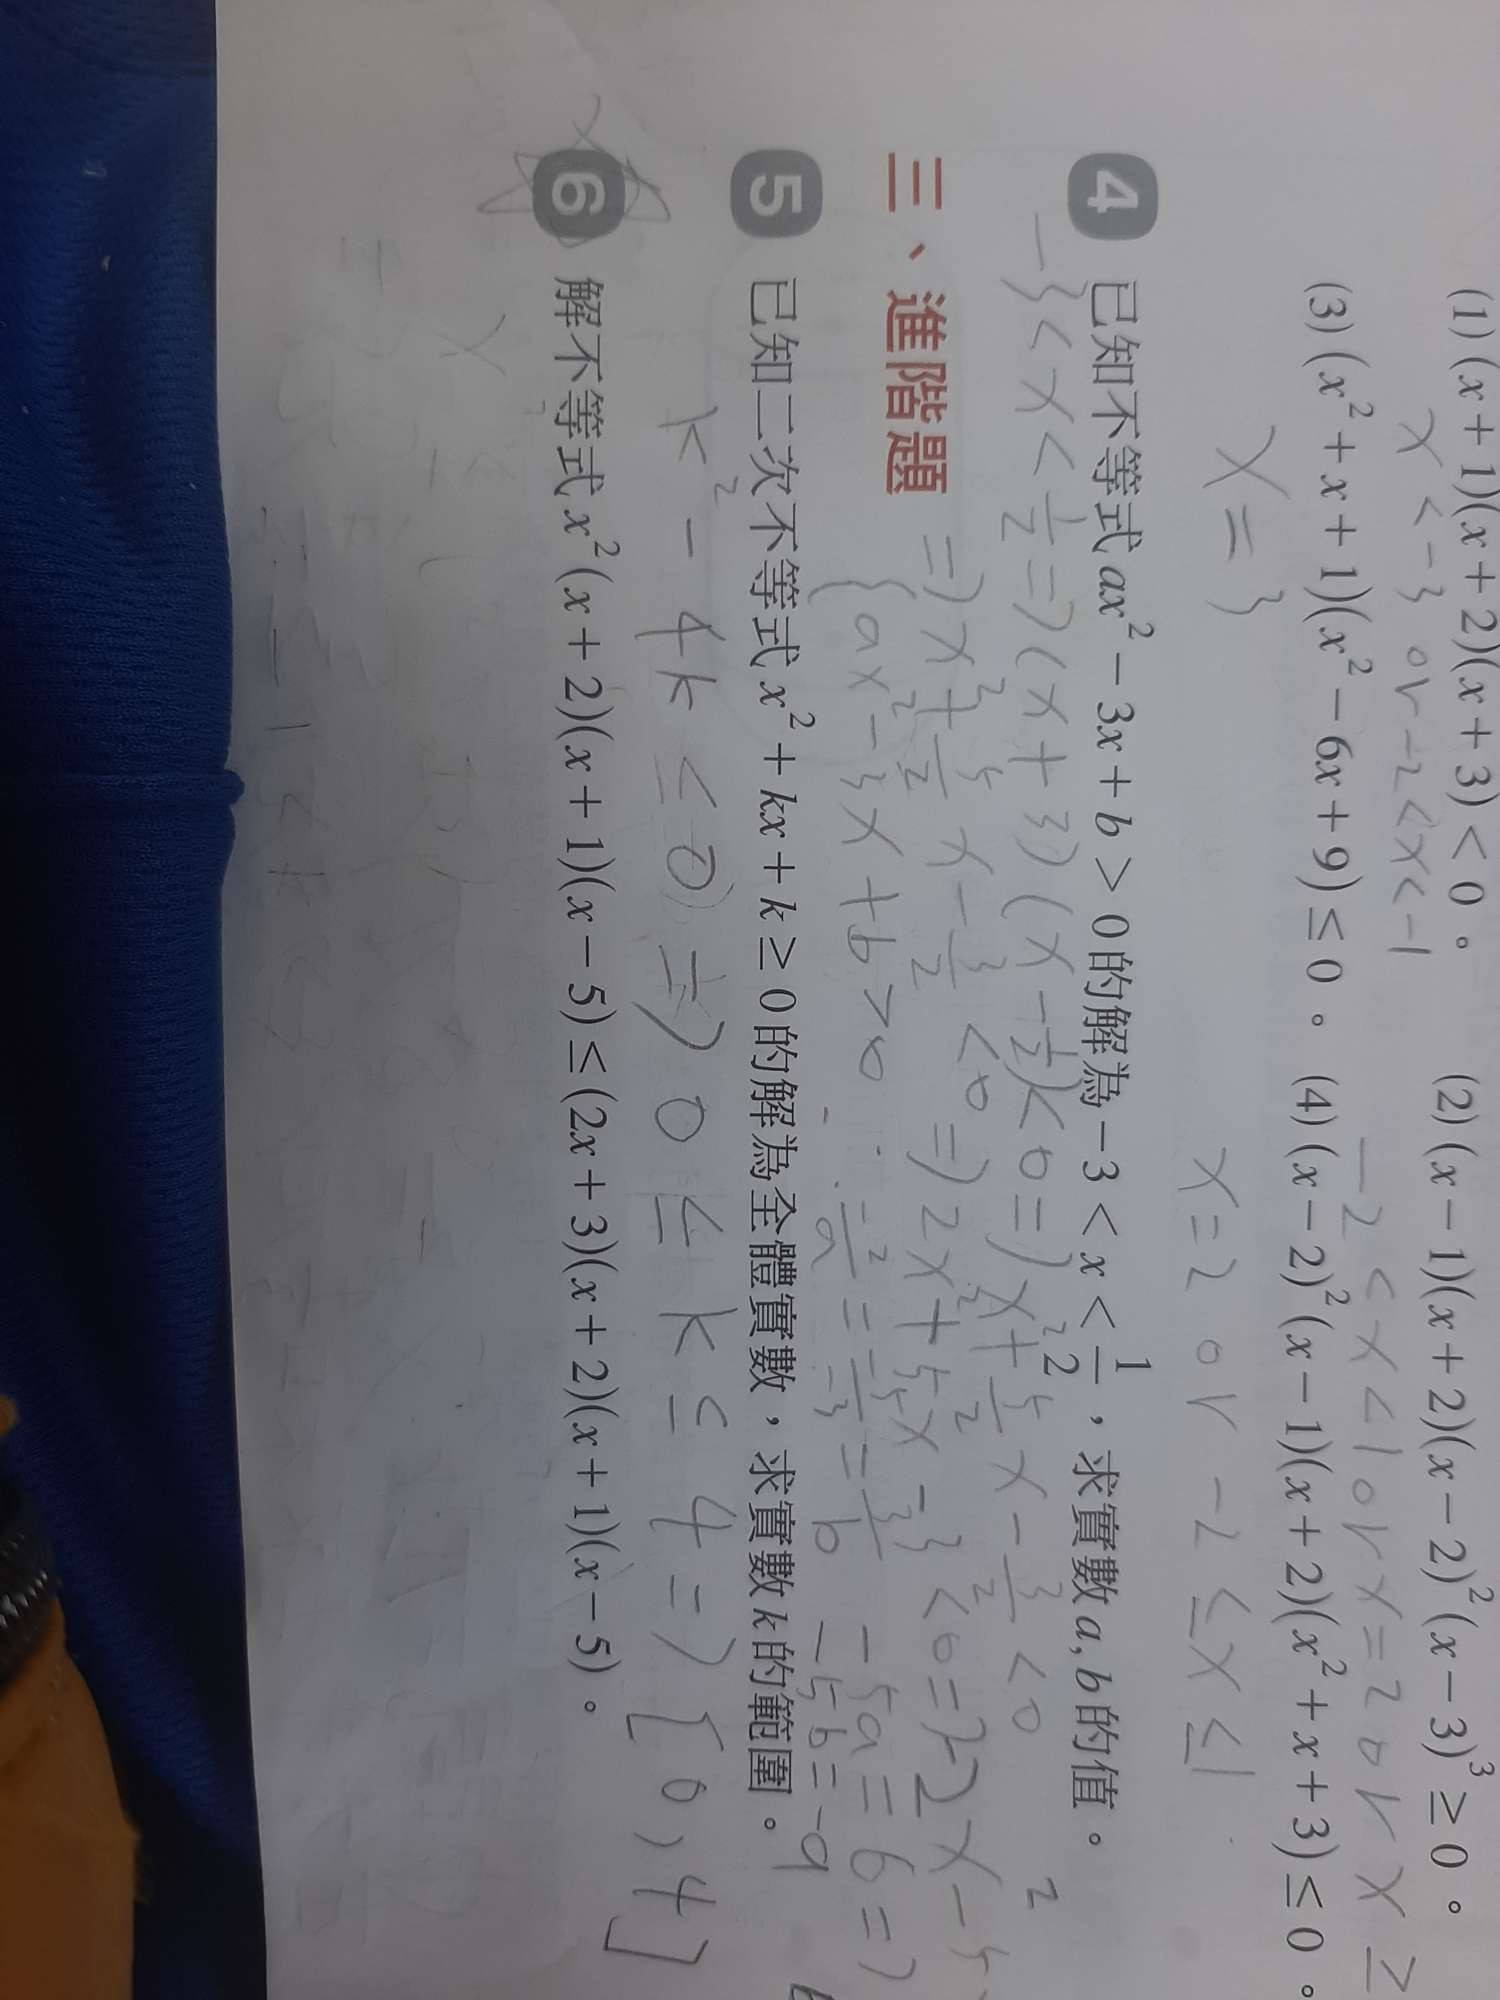 (1) (x+1)(x+2)(x+3)<0。 (2) (x-1)(x+2)(x-2)²(x-3)³≥0。
x<-3 or -2<x<-1 -2<x<1 or x=2 or x≥
(3) (x²+x+1)(x²-6x+9)≤0。 (4) (x-2)²(x-1)(x+2)(x²+x+3)≤0。
x=3 x=2 or -2≤x≤1
4 已知不等式 ax²-3x+b>0 的解為 -3<x<1/2,求實數 a, b 的值。
-3<x<1/2 => (x+3)(x-1/2)<0 => x²+5/2x-3/2<0
三、進階題
=> x²+5/2x-3/2<0 => 2x²+5x-3<0 => -2x²-5
{ax²-3x+b>0 -2/a=-5/-3=3/b -5a=6=>
-5b=-9
5 已知二次不等式 x²+kx+k≥0 的解為全體實數,求實數 k 的範圍。
k²-4k≤0 => 0≤k≤4 => [0,4]
6 解不等式 x²(x+2)(x+1)(x-5)≤(2x+3)(x+2)(x+1)(x-5)。